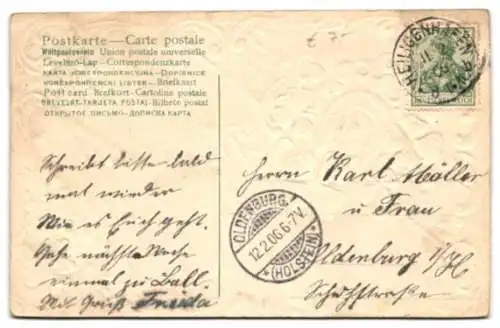 Postkarte — Carte postale
Weltpostverein Union postale universelle
Levelező-Lap — Correspondenzkarte
KARTA KORESPONDENCYJNA — DOPISNICE
KORESPONDENČNI LISTEK — Brievkaart
Post card Brefkort — Cartolina postale
BREVKORT — TARJETA POSTAL — Bilhete postal
ОТКРЫТОЕ ПИСЬМО — ДОПИСНА КАРТА
HEILIGENHAFEN
Schreibt bitte bald
mal wieder
Wie es Euch geht.
Gehe nächste Woche
einmal zu Ball.
Mit Gruß Frieda
Herrn Karl Möller
u Frau
Oldenburg i/H
Schuhstraße
OLDENBURG.
12.2.06.6-7V.
*(HOLSTEIN)*